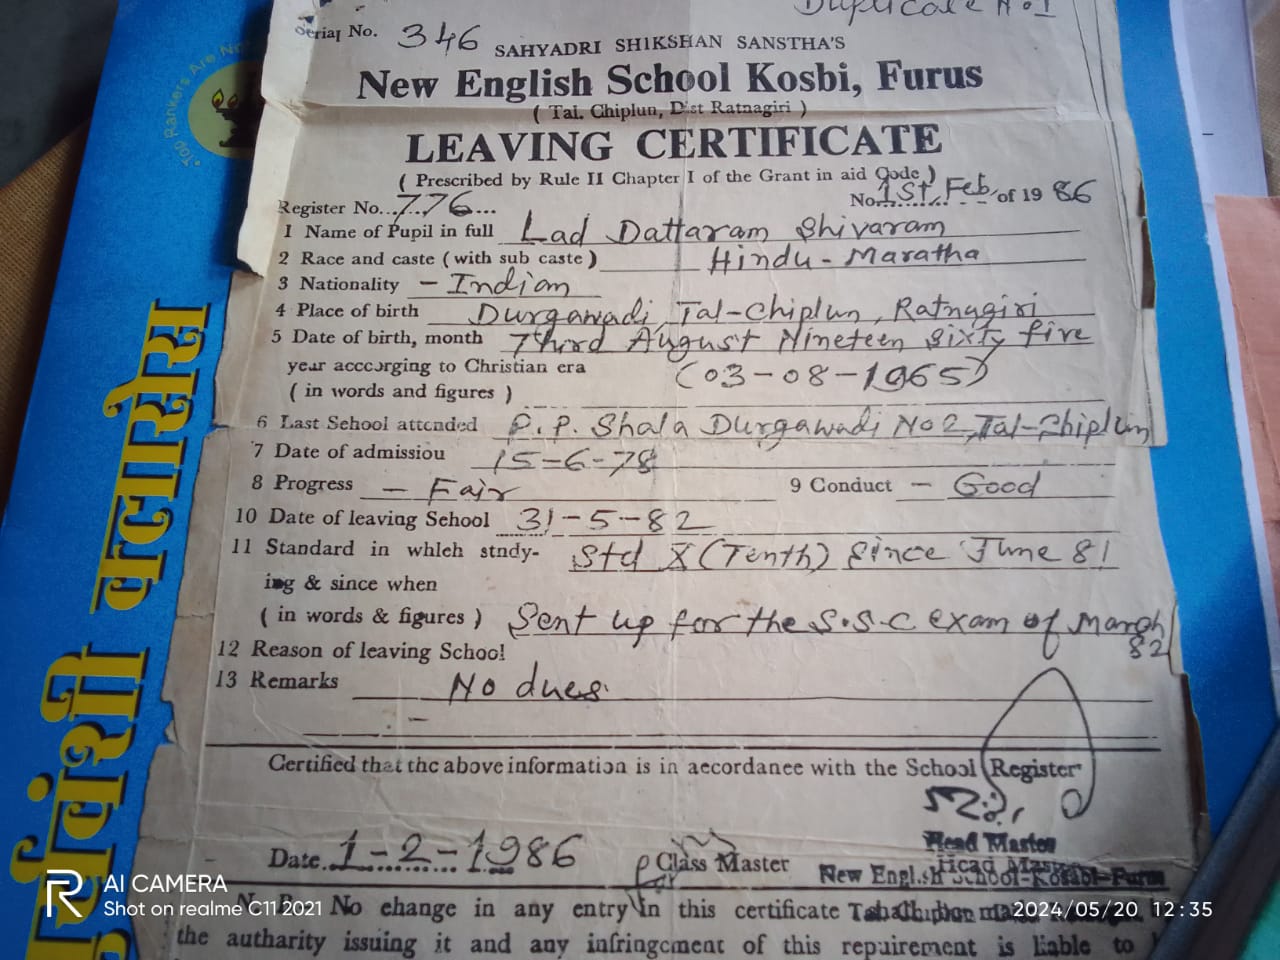 Duplicate No.1
Serial No. 346
SAHYADRI SHIKSHAN SANSTHA'S
New English School Kosbi, Furus
( Tal. Chiplun, Dist Ratnagiri )
LEAVING CERTIFICATE
( Prescribed by Rule II Chapter I of the Grant in aid Code )
Register No. 776 No. 1st Feb. of 19 86
1 Name of Pupil in full Lad Dattaram Shivaram
2 Race and caste ( with sub caste ) Hindu - Maratha
3 Nationality - Indian
4 Place of birth Durgawadi, Tal-Chiplun, Ratnagiri
5 Date of birth, month Third August Nineteen Sixty five
year acccrging to Christian era (03-08-1965)
( in words and figures )
6 Last School attended P.P. Shala Durgawadi No 2, Tal-Chiplun
7 Date of admissiou 15-6-78
8 Progress - Fair 9 Conduct - Good
10 Date of leaving School 31-5-82
11 Standard in whleh stndy- Std X (Tenth) Since June 81
ing & since when
( in words & figures ) Sent up for the S.S.C exam of March 82
12 Reason of leaving School
13 Remarks No dues.
-
Certified that the above information is in aecordance with the School Register
Date. 1-2-1986 for Class Master
Head Master
Head Master
New English School-Kosbi-Furus
N. B. No change in any entry in this certificate
the autharity issuing it and any infringcment of this repuirement is liable to
Top Rankers Are
सूर्यवंशी क्लासेस
AI CAMERA
Shot on realme C11 2021
2024/05/20 12:35